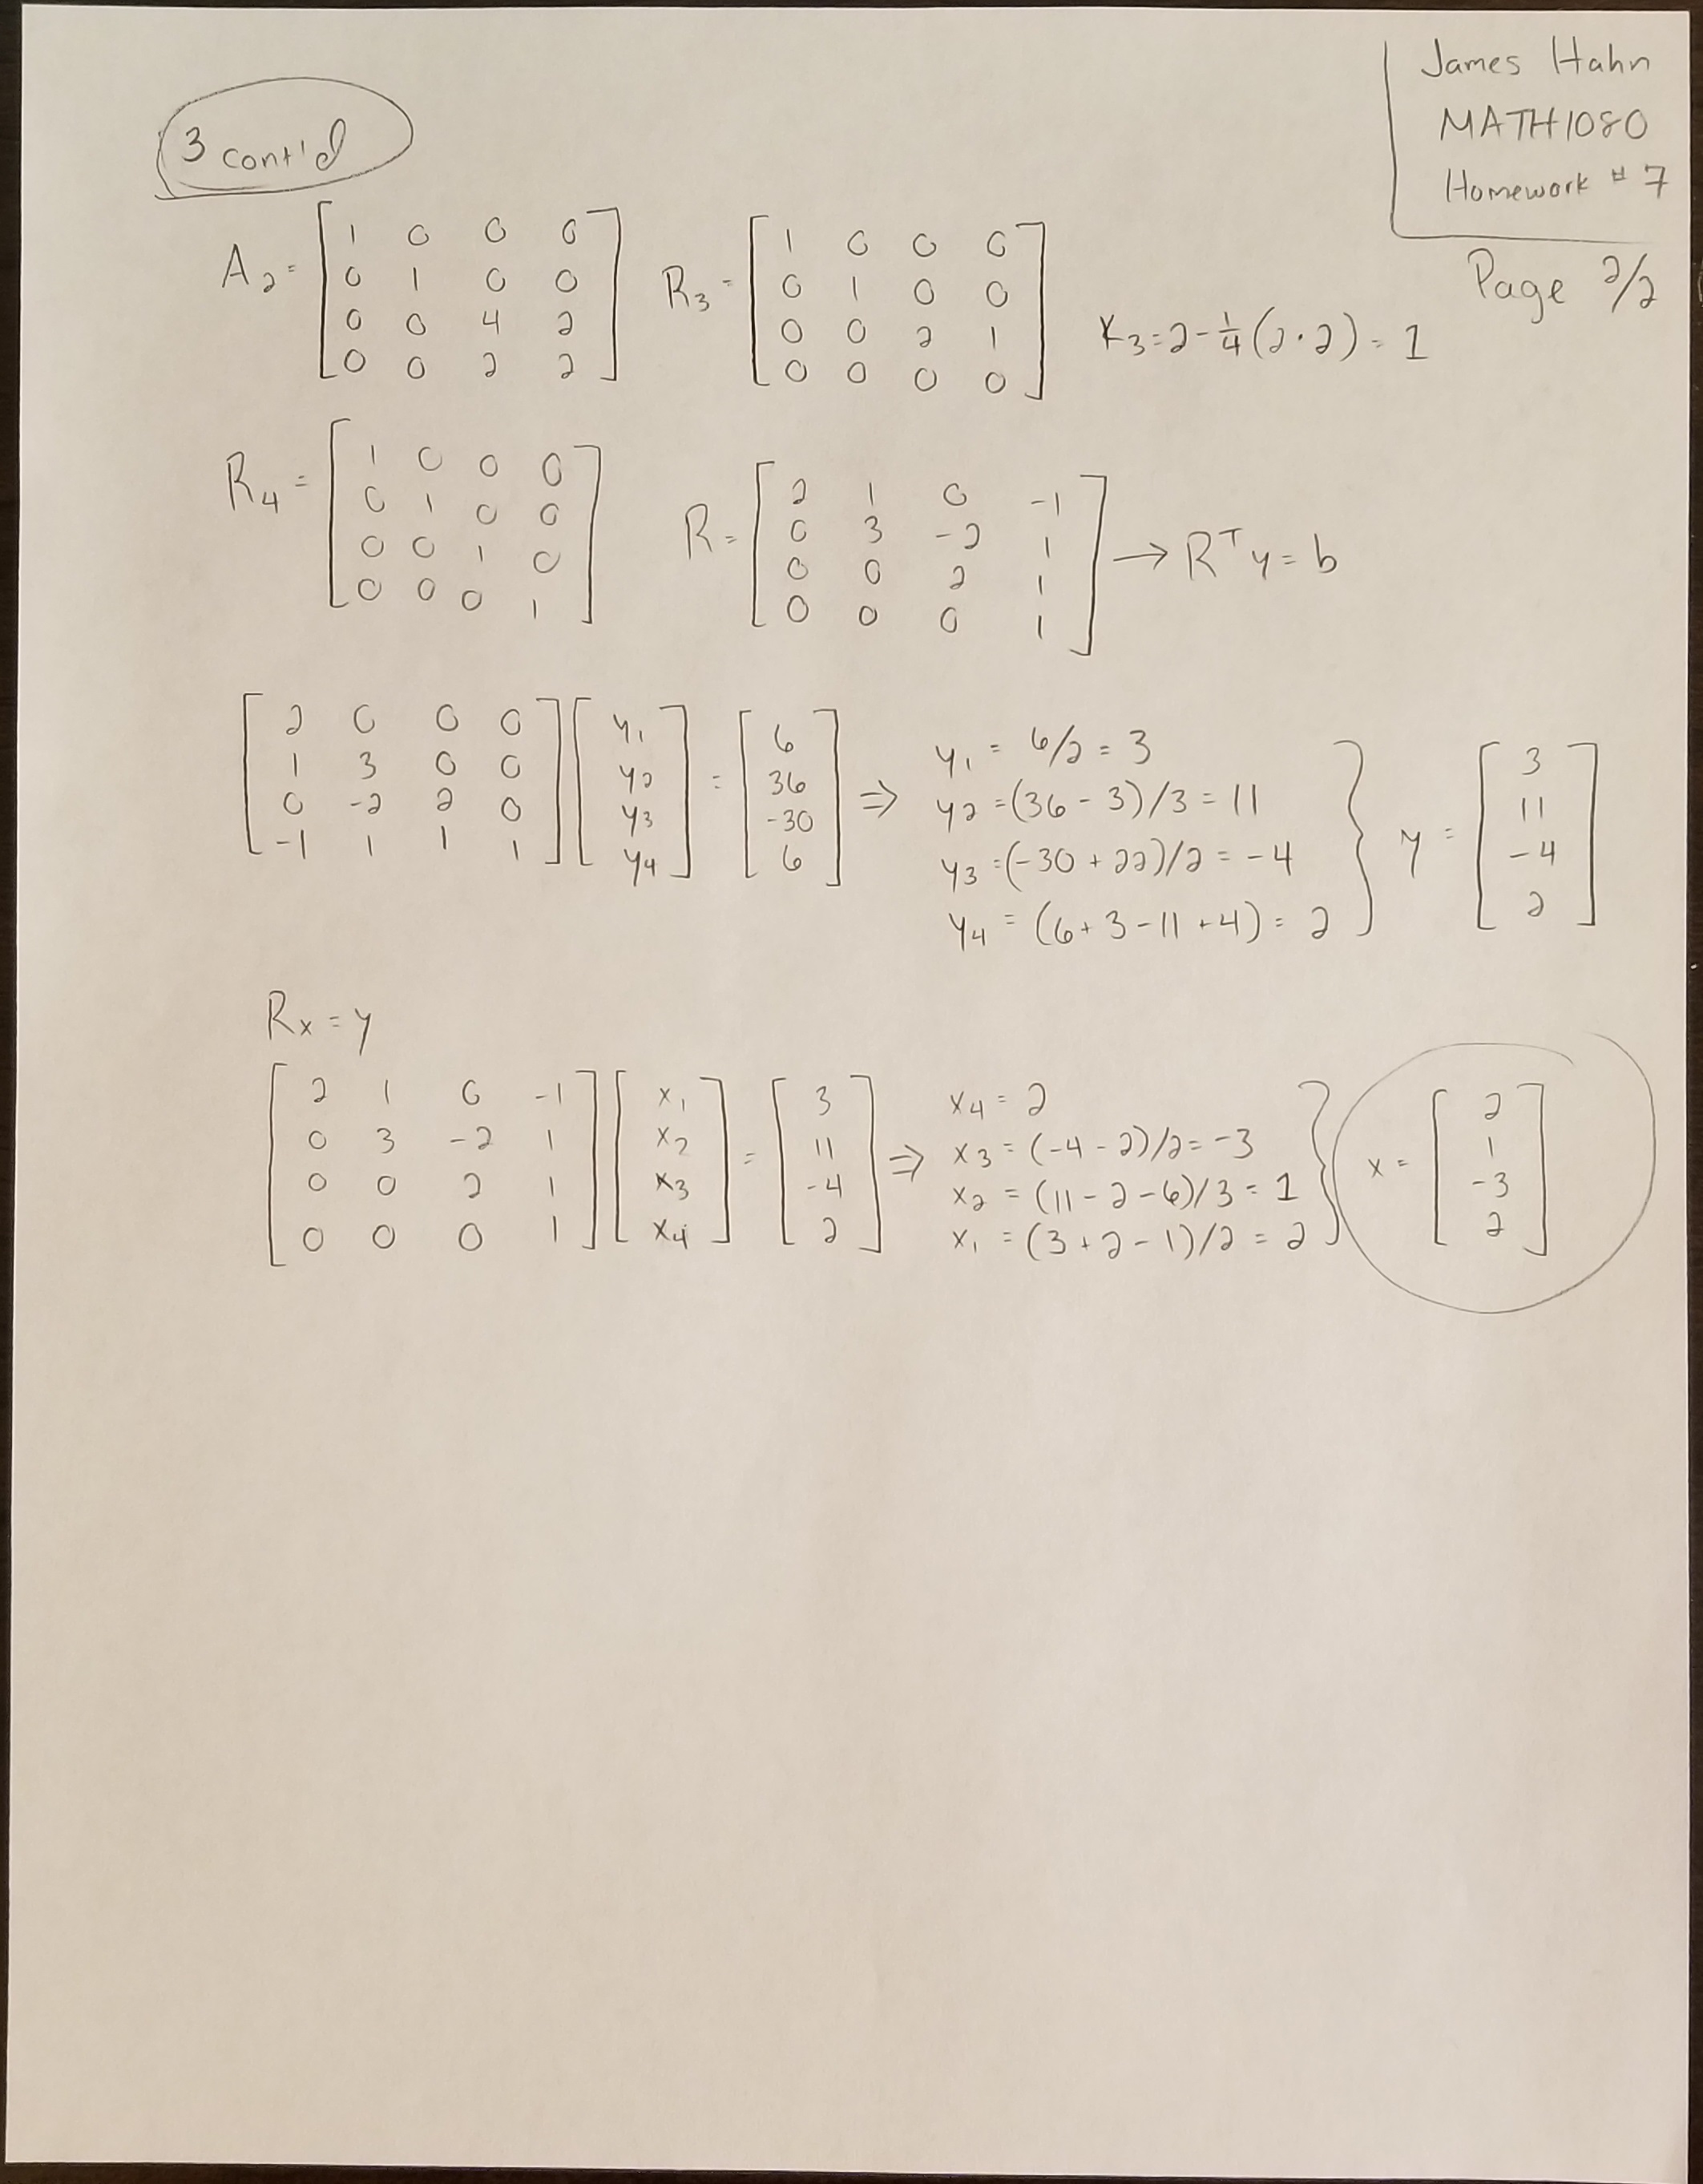 James Hahn
MATH1080
Homework #7
Page 2/2
3 cont'd
A₂ = [1 0 0 0; 0 1 0 0; 0 0 4 2; 0 0 2 2] R₃ = [1 0 0 0; 0 1 0 0; 0 0 2 1; 0 0 0 0] K₃ = 2 - 1/4(2·2) = 1
R₄ = [1 0 0 0; 0 1 0 0; 0 0 1 0; 0 0 0 1] R = [2 1 0 -1; 0 3 -2 1; 0 0 2 1; 0 0 0 1] → Rᵀy = b
[2 0 0 0; 1 3 0 0; 0 -2 2 0; -1 1 1 1] [y₁; y₂; y₃; y₄] = [6; 36; -30; 6] ⇒
y₁ = 6/2 = 3
y₂ = (36 - 3)/3 = 11
y₃ = (-30 + 22)/2 = -4
y₄ = (6 + 3 - 11 + 4) = 2
y = [3; 11; -4; 2]
Rx = y
[2 1 0 -1; 0 3 -2 1; 0 0 2 1; 0 0 0 1] [x₁; x₂; x₃; x₄] = [3; 11; -4; 2] ⇒
x₄ = 2
x₃ = (-4 - 2)/2 = -3
x₂ = (11 - 2 - 6)/3 = 1
x₁ = (3 + 2 - 1)/2 = 2
x = [2; 1; -3; 2]